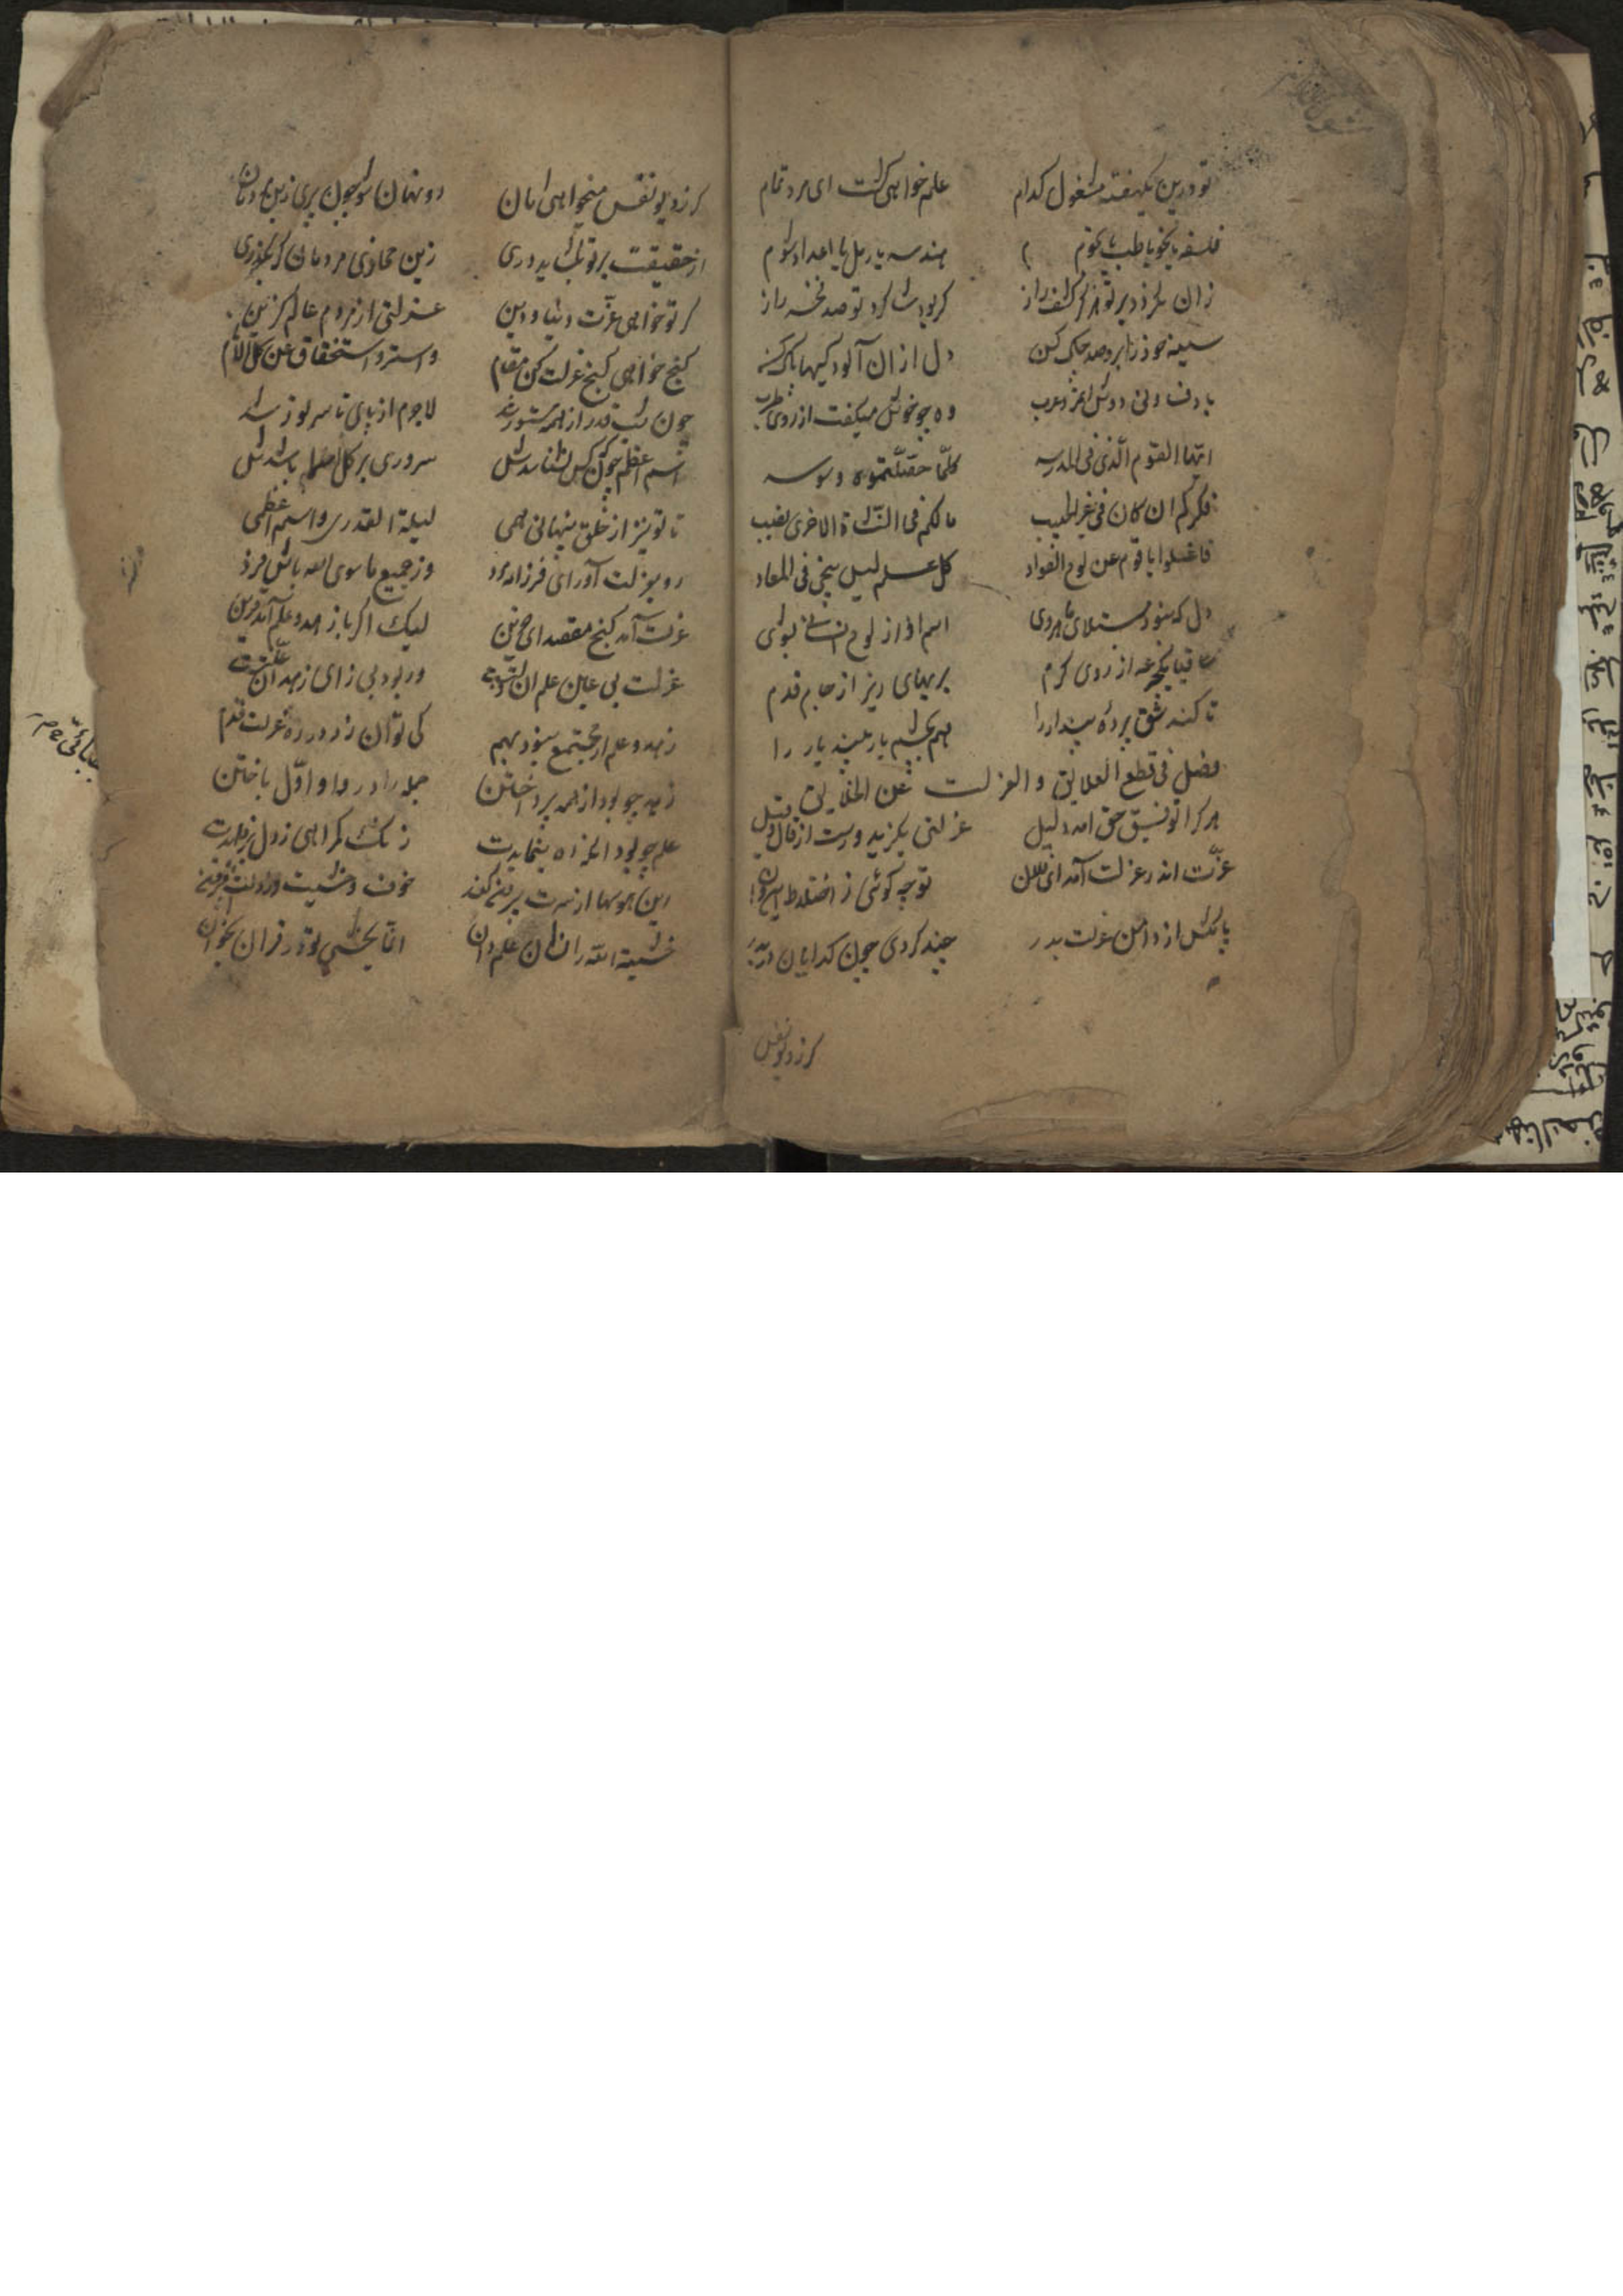 تو درین یکهفته مشغول کدام علم خواهی گشت ای مرد تمام
فلسفه یا نحو یا طب یا نجوم هندسه یا رمل یا اعداد شوم
زان نکردد بر تو هرگز کشف راز کر بود شاکرد تو صد فخر راز
سینه خود را برو صد چاک کن دل ازان آلودکیها پاک کن
با دف و نی دوش آن مرد عرب وه چه خوش میکفت از روی طرب
ایها القوم الذی فی المدرسه کلما حصلتموه وسوسه
فکرکم ان کان فی غیر الحبیب مالکم فی النشاة الاخری نصیب
فاغسلوا یا قوم عن لوح الفواد کل علم لیس ینجی فی المعاد
دل که
اسم او از لوح انسانی بشوی
ساقیا یکجرعه از روی کرم بر بهائی ریز از جام قدم
تا کند شق پرده پندار را هم بچشم یار بیند یار را
فصل فی قطع العلایق و العزلت عن الخلایق
هر کرا توفیق حق امد دلیل عزلتی بکزید و رست از قال و قیل
عزّت اندر عزلت آمد ای فلان تو چه کوئی ز اختلاط این و آن
پا مکش از دامن عزلت بدر چند کردی چون کدایان در بدر
کر ز دیو نفس
کر ز دیو نفس میخواهی امان رو نهان شو چون پری زین مردمان
از حقیقت بر تو نکشاید دری زین مجازی مردمان تا نکذری
کر تو خواهی عزّت دنیا و دین عزلتی از مردم عالم کزین
کنج خواهی کنج عزلت کن مقام واستر و استخفاق عن کل الانام
چون شب قدر از همه مستور شد لاجرم از پای تا سر نور شد
اسم اعظم چون که کس نشناسدش سروری بر کل اسما باشدش
تا تو نیز از خلق پنهانی همی لیلة القدری و اسم اعظمی
رو بعزلت آور ای فرزانه مرد وز جمیع ما سوی الله باش فرد
عزلت آمد کنج مقصد ای حزین لیک اکر با زهد و علم آید قرین
عزلت بی عین علم ان زلتست ور بود بی زای زهد آن علتست
زهد و علم ار مجتمع نبود بهم کی توان زد در ره عزلت قدم
زهد چه بود از همه پرداختن جمله را در داو اوّل باختن
علم چه بود انکه ره بنمایدت زنک کمراهی ز دل بزدایدت
این هوسها از سرت بیرون کند خوف و خشیت در دلت افزون کند
خشیة الله را نشان علم دان انما یخشی تو در قران بخوان